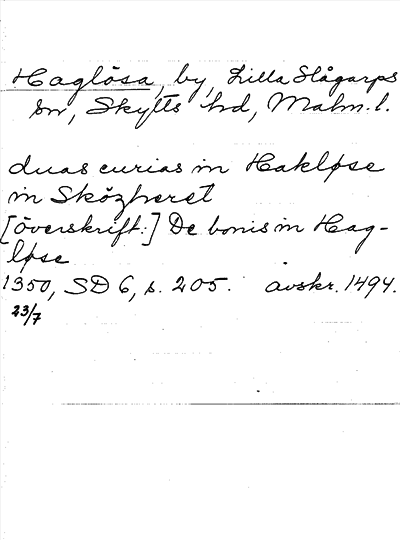 Haglösa, by, Lilla Slågarps
sn, Skytts hd, Malm. l.
duas curias in Hakløse
in Sközhæret
[överskrift:] De bonis in Hag-
løse
1350, SD 6, s. 205. avskr. 1494.
23/7